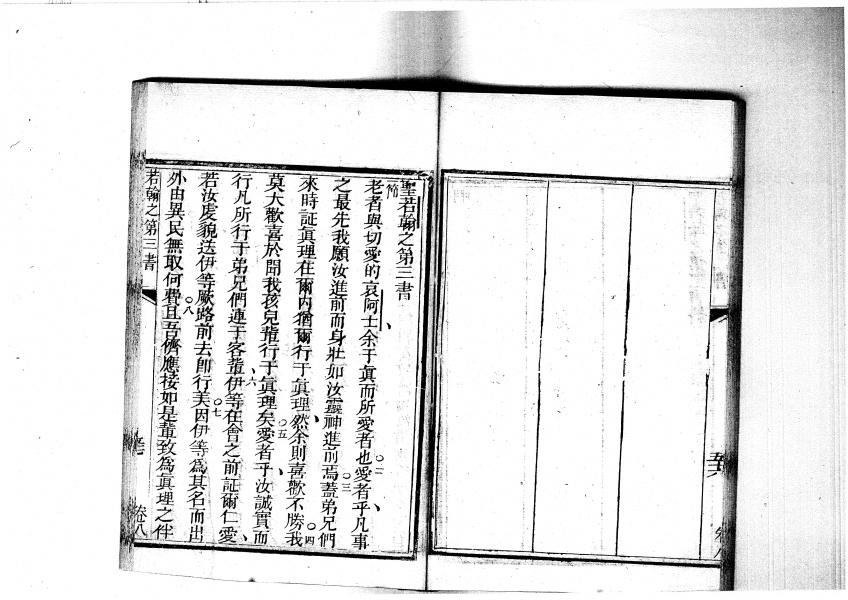 聖若翰之第三書
老者與切愛的哀阿士余于眞而所愛者也○二愛者乎凡事
之最先我願汝進前而身壯如汝靈神進前焉○三蓋弟兄們
來時証眞理在爾內猶爾行于眞理然余則喜歡不勝○四我
莫大歡喜於聞我孩兒輩行于眞理矣○五愛者乎汝誠實而
行凡所行于弟兄們連于客輩○六伊等在會之前証爾仁愛
若汝虔貌送伊等厥路前去卽行美○七因伊等爲其名而出
外由異民無取何費○八且吾儕應接如是輩致爲眞理之伴
若翰之第三書
卷八